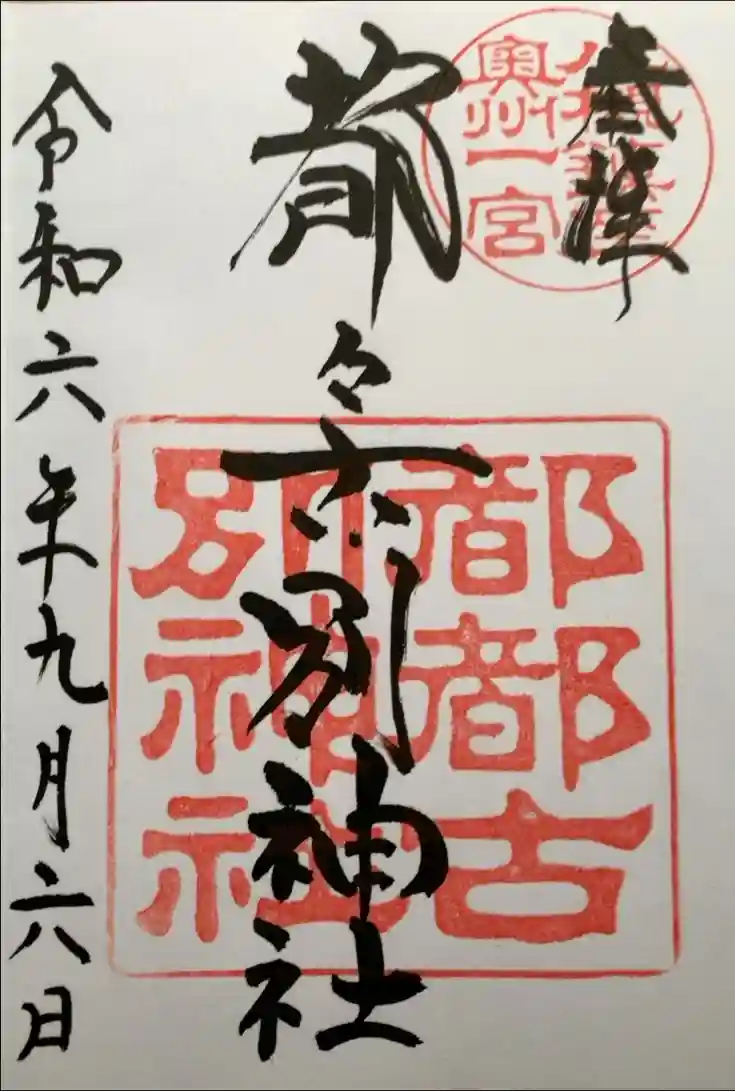 奉拝
奥州一宮
都々古別神社
都都古別神社
令和六年九月六日